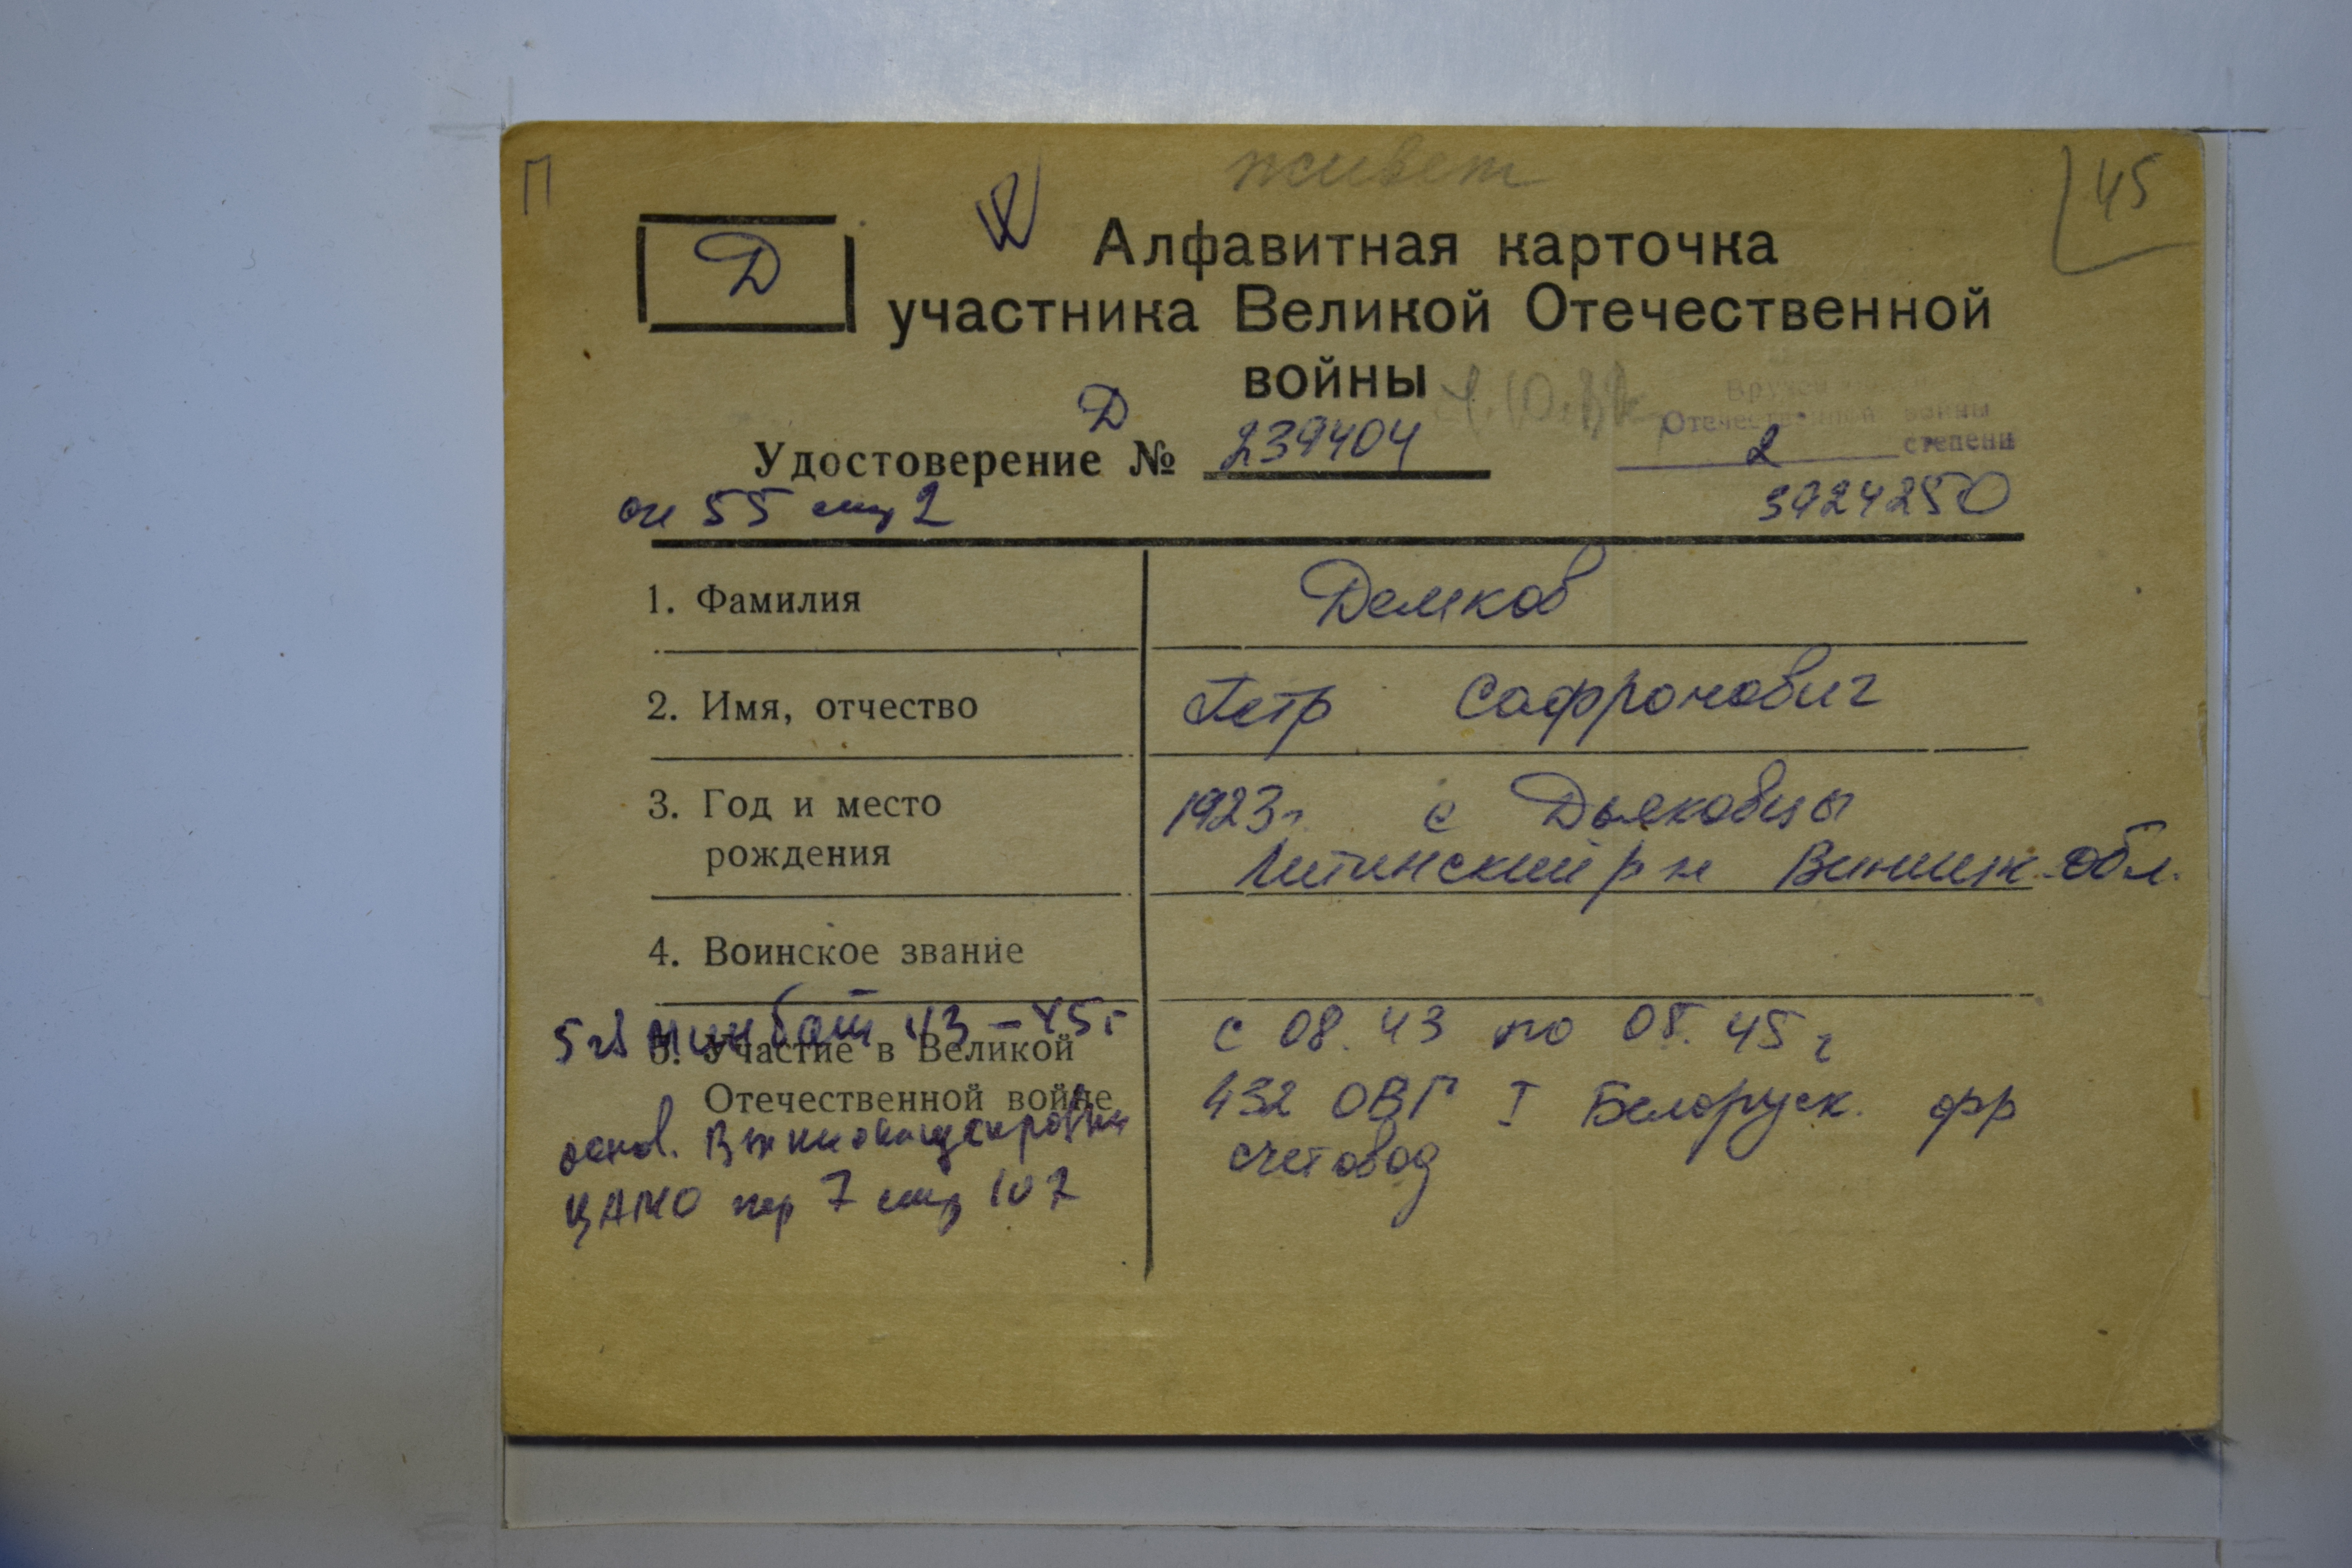 П
живет
45
Д
Алфавитная карточка
участника Великой Отечественной
войны
Вручен
Отечественной войны
2 степени
Д
Удостоверение № 239404
оп 55 ящ 2
3924250
1. Фамилия
Демков
2. Имя, отчество
Петр Сафронович
3. Год и место
рождения
1923г. с Дьяковцы
Литинский р н Винниц. обл.
4. Воинское звание
5 гв минбат 43-45г
5. Участие в Великой
Отечественной войне
с 08. 43 по 05. 45 г
432 ОВГ I Белоруск. фр
счетовод
основ.
ЦАМО пер 7 ящ 107